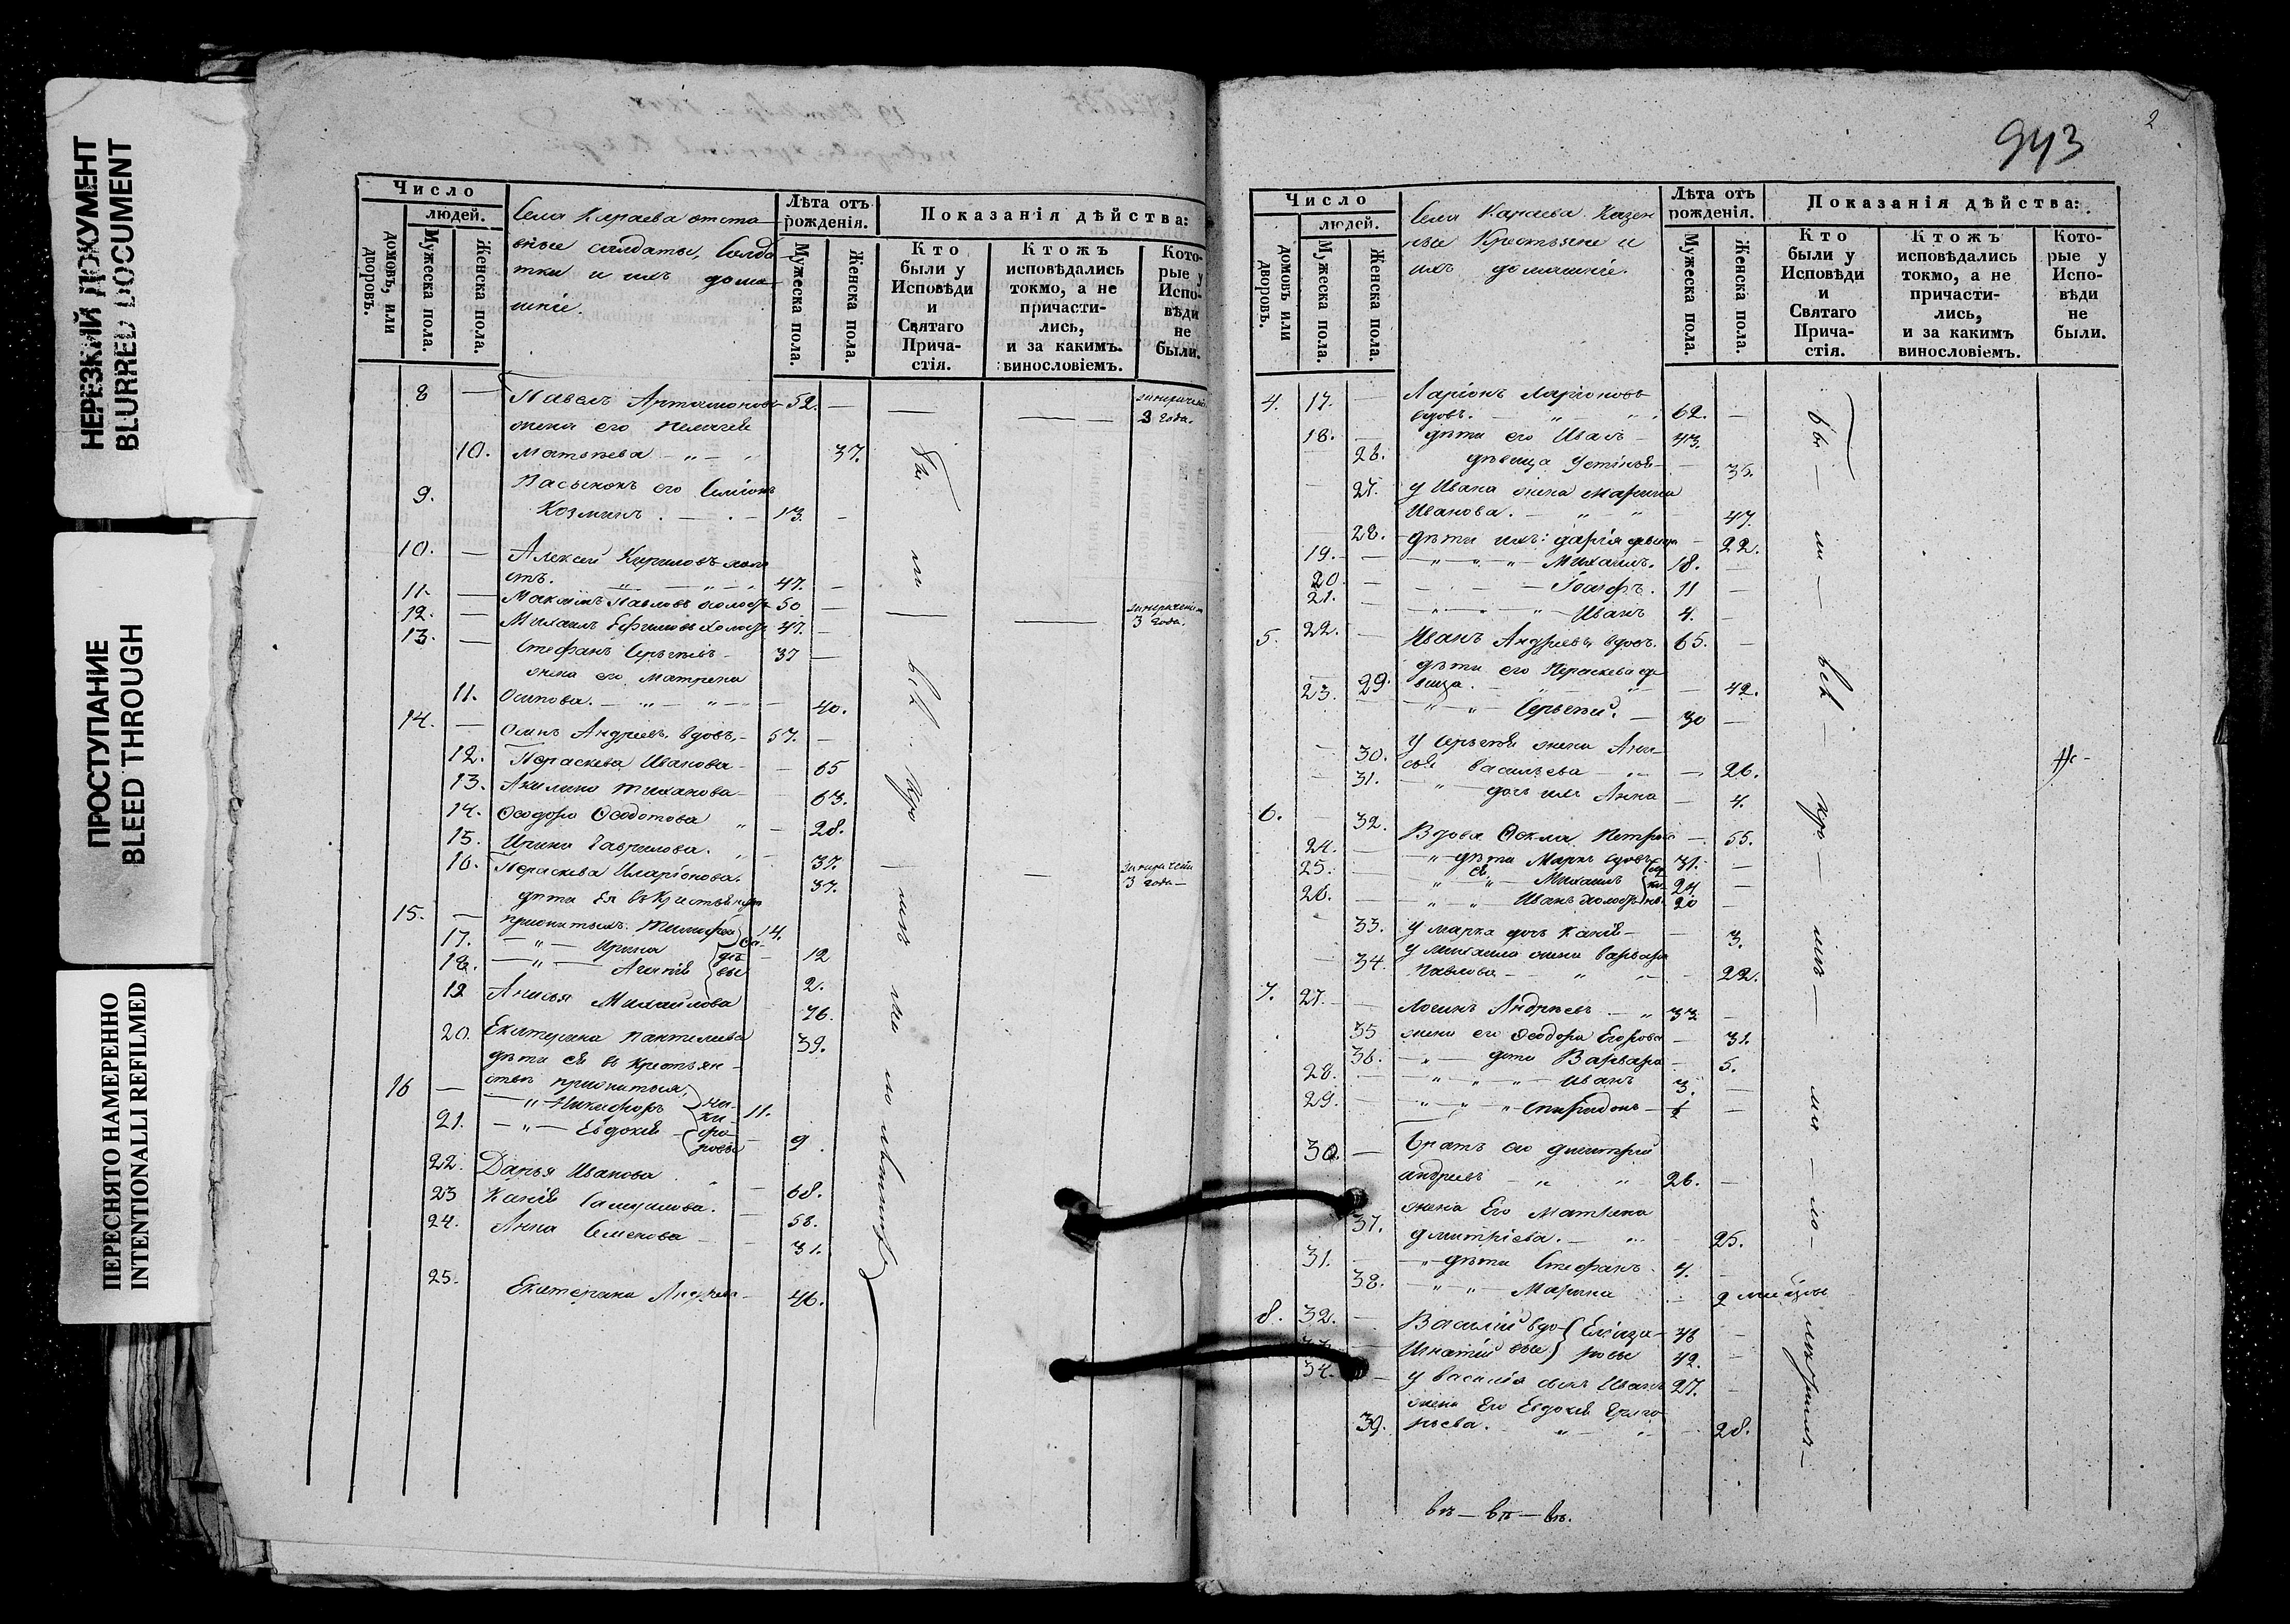 НЕРЕЗКИЙ ДОКУМЕНТ
BLURRED DOCUMENT
ПРОСТУПАНИЕ
BLEED THROUGH
ПЕРЕСНЯТО НАМЕРЕННО
INTENTIONALLI REFILMED
Число
людей.
домовъ, или дворовъ.
Мужеска пола.
Женска пола.
Села Караева отста
вные солдаты, Солда
тки и ихъ дома
шніе.
Лѣта отъ рожденія.
Мужеска пола.
Женска пола.
Показанія дѣйства:
Кто были у Исповѣди и Святаго Прича-стія.
Ктожъ исповѣдались токмо, а не причасти-лись, и за какимъ. винословіемъ.
Кото-рые у Испо-вѣди не были.
8 — Павелъ Артамоновъ 52. —
3 года.
жена его Пелагея
10. Матвѣева — „ — 37.
9. Пасынокъ его Симіонъ
Козминъ . — . — 13. —
10. — Алексей Кириловъ холо
стъ. 47. —
11. — Максимъ Павловъ холостъ 50 —
12. — Михаилъ Ефимовъ холостъ 47. —
3 года.
13. — Стефанъ Сергѣевъ 37 —
жена его Матрена
11. Осипова. — „ — „ — 40.
14. — Осипъ Андреевъ, вдовъ, — 57. —
12. Пораскева Иванова — 65
13. Акилина Тиханова — 63.
14. Ѳеодора Ѳеодотова „ — 28.
15. Ирина Гаврилова. „ — 37.
16. Пораскева Иларіонова. 37.
3 года —
дѣти ея въ Крестьянствѣ
15. — прижитыя: Тимофей 14.
17. — „ — Ирина 12
18. — „ — Агапія 2.
19 Анисья Михайлова 76.
20. Екатерина Пантелеева 39.
дѣти ея въ Крестьян-
ствѣ прижитыя,
16 — — „ Никифоръ 11.
21. — „ — Евдокія 9.
22. Дарья Иванова 68.
23 Ксенія Самуилова. — 58.
24. Анна Семенова — 31.
25. Екатерина Андреева — 46.
943
2
Число
людей.
домовъ или дворовъ.
Мужеска пола.
Женска пола.
Села Караева Казен
ные Крестьяне и
ихъ домашніе.
Лѣта отъ рожденія.
Мужеска пола.
Женска пола.
Показанія дѣйства:
Кто были у Исповѣди и Святаго Прича-стія.
Ктожъ исповѣдались токмо, а не причасти-лись, и за какимъ винословіемъ.
Кото-рые у Испо-вѣди не были.
4. 17. — Ларіонъ Ларіоновъ
вдовъ. 62. —
18. — дѣти его Иванъ — 43.
26. дѣвица Устинья — 36.
27. у Ивана жена Марина
Иванова. — „ „ 47.
28. дѣти ихъ: Дарія дѣвица — 22.
19. — „ „ „ Михаилъ. 18. —
20. — Іосифъ. 11 —
21. — „ „ „ Иванъ 4. —
5. 22. — Иванъ Андреевъ вдовъ. 65. —
дѣти его Пераскева дѣ
29. вица. — 42.
23. — „ „ Сергѣй. — 30 —
у Сергѣя жена Ани-
30. сья Васильева — 26.
31. „ дочь ихъ Анна — 4.
6. 32. Вдова Ѳекла Петрова — 55.
24. — „ дѣти Маркъ вдовъ 31. —
25. — „ ея „ Михаилъ 24 —
26. — „ „ Иванъ холостъ 20 —
33. у Марка дочь Ксенія — 3.
у Михаила жена Варвара
34. Павлова — „ — 22.
7. 27. — Логинъ Андреевъ — „ 33 —
35 жена его Ѳеодора Егорова — 31.
36. — „ — дѣти Варвара — 5.
28. — „ „ „ Иванъ 3. —
29. — „ „ „ Спиридонъ — 1 —
30. — Братъ его Дмитрій
Андреевъ — „ „ 26. —
жена Его Матрена
37. Дмитріева. — „ 25.
31. — „ дѣти Стефанъ. 4. —
38. „ „ Марина 2 месяцовъ
8. 32. — Василій вдо- Елиза- 46 —
33. — Игнатій вые ровы 42. —
34. — у Василія сынъ Иванъ 27. —
жена Его Евдокія Григо
39. рьева. „ — 28.
въ — въ — въ.